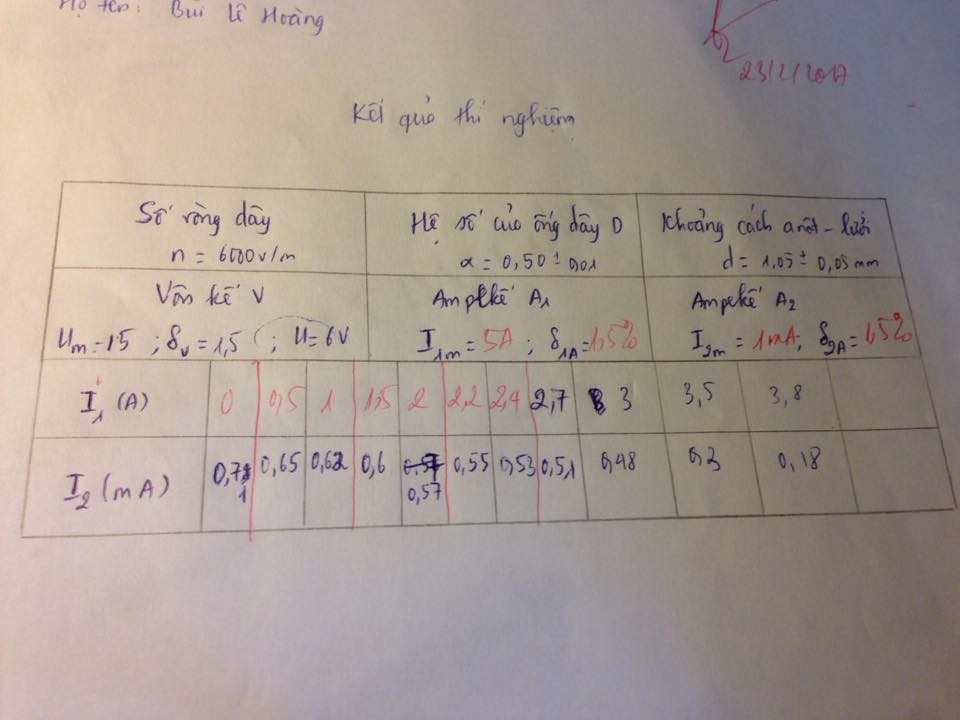 Họ tên: Bùi Lê Hoàng
23/2/2017
Kết quả thí nghiệm
Số vòng dây
n = 6000 v/m
Hệ số của ống dây D
α = 0,50 ± 0,01
Khoảng cách anôt - lưới
d = 1,05 ± 0,05 mm
Vôn kế V
Um = 15 ; δv = 1,5 ; U = 6V
Ampe kế A1
I1m = 5A ; δ1A = 1,5%
Ampe kế A2
I2m = 1mA; δ2A = 1,5%
I1 (A) 0 0,5 1 1,5 2 2,2 2,4 2,7 3 3,5 3,8
I2 (mA) 0,71 0,65 0,62 0,6 0,57 0,55 0,53 0,51 0,48 0,3 0,18